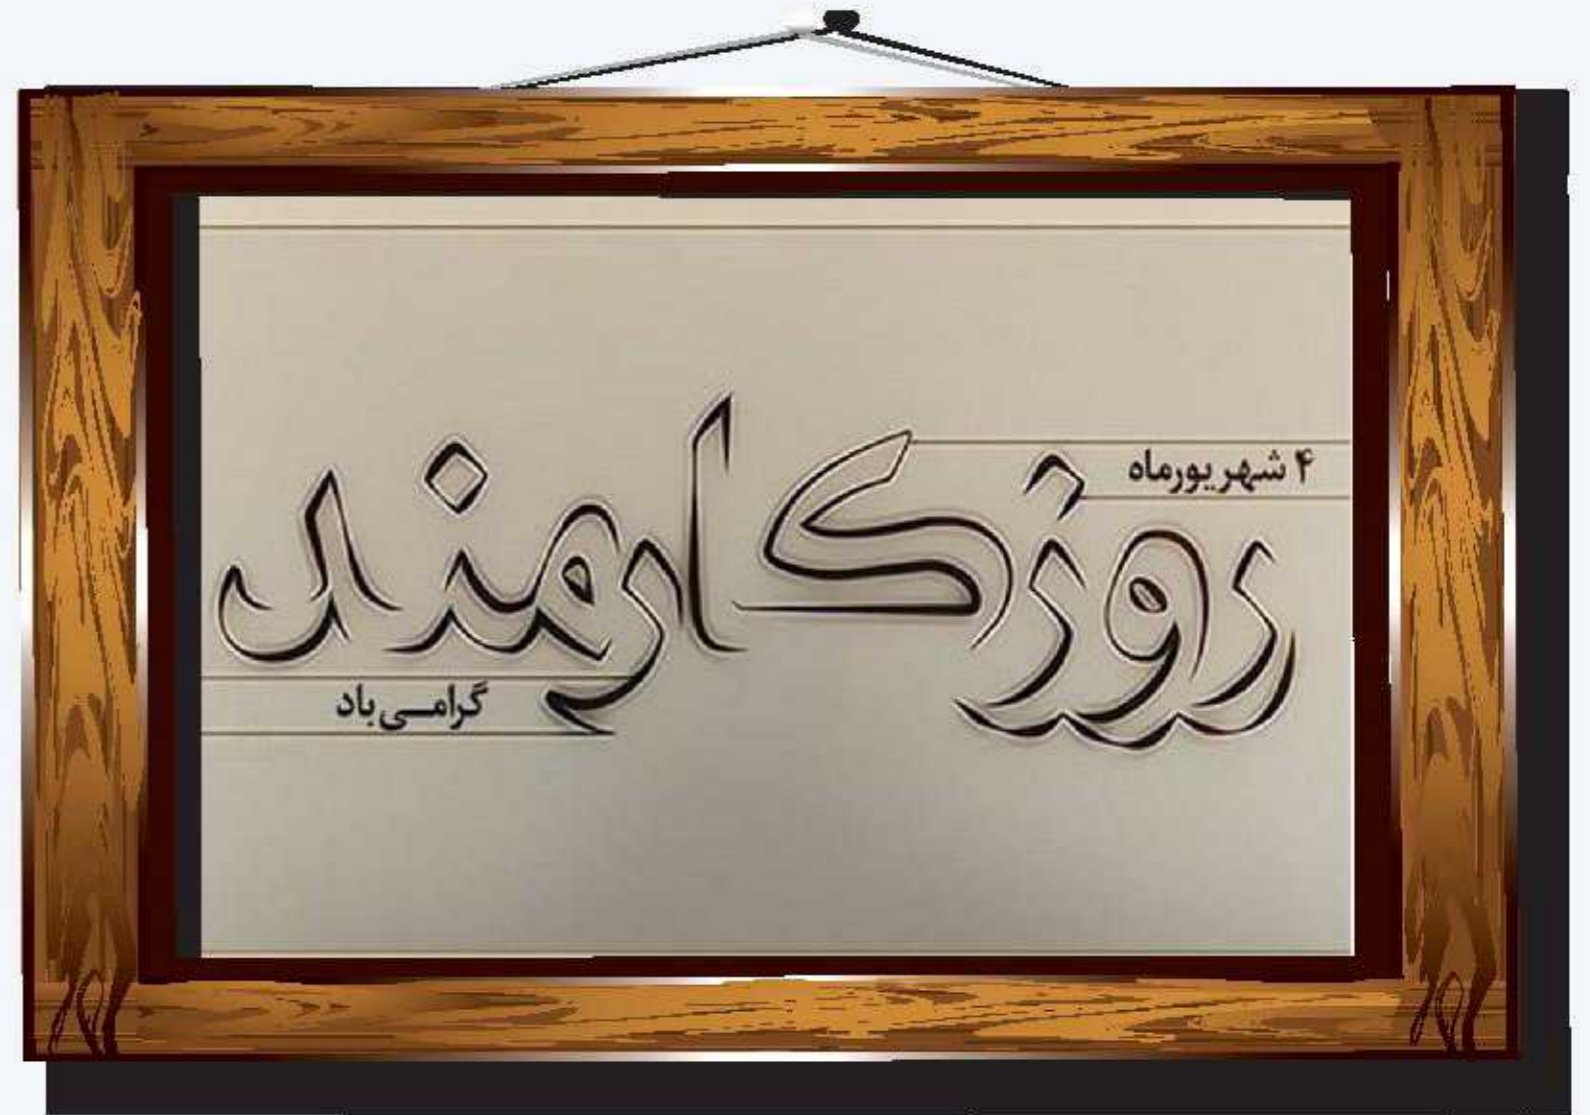 ۴ شهریورماه
روز کارمند
گرامی‌باد